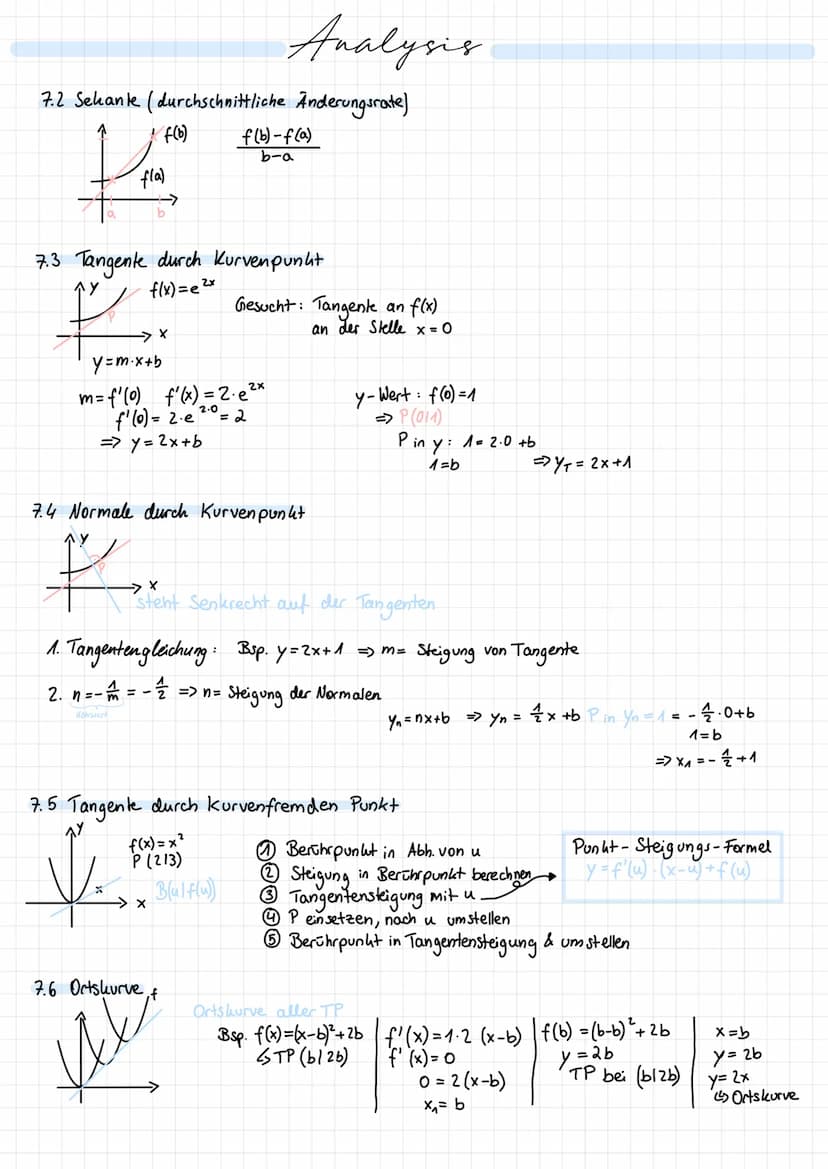 Analysis
7.2 Sekante (durchschnittliche Änderungsrate)
f(b)
f(a)
a b
f(b)-f(a)
b-a
7.3 Tangente durch Kurvenpunkt
y
f(x)=e^2x
P
x
y=m·x+b
Gesucht: Tangente an f(x)
an der Stelle x=0
m=f'(0) f'(x)=2·e^2x
f'(0)=2·e^2·0=2
⇒ y=2x+b
y-Wert: f(0)=1
⇒ P(0|1)
P in y: 1=2·0+b
1=b ⇒ y_T=2x+1
7.4 Normale durch Kurvenpunkt
y
P
x
steht Senkrecht auf der Tangenten
1. Tangentengleichung: Bsp. y=2x+1 ⇒ m= Steigung von Tangente
2. n=-1/m = -1/2 ⇒ n= Steigung der Normalen
y_n=nx+b ⇒ y_n = 1/2x+b P in y_n=1 = -1/2·0+b
1=b
⇒ x_1=-1/2+1
7.5 Tangente durch kurvenfremden Punkt
y
x
f(x)=x²
P(2|3)
B(u|f(u))
① Berührpunkt in Abh. von u
② Steigung in Berührpunkt berechnen
③ Tangentensteigung mit u
④ P einsetzen, nach u umstellen
⑤ Berührpunkt in Tangentensteigung & umstellen
Punkt-Steigungs-Formel
y=f'(u)·(x-u)+f(u)
7.6 Ortskurve
f
Ortskurve aller TP
Bsp. f(x)=(x-b)²+2b
↳TP(b|2b)
f'(x)=1·2(x-b)
f'(x)=0
0=2(x-b)
x_1=b
f(b)=(b-b)²+2b
y=2b
TP bei (b|2b)
x=b
y=2b
y=2x
↳Ortskurve